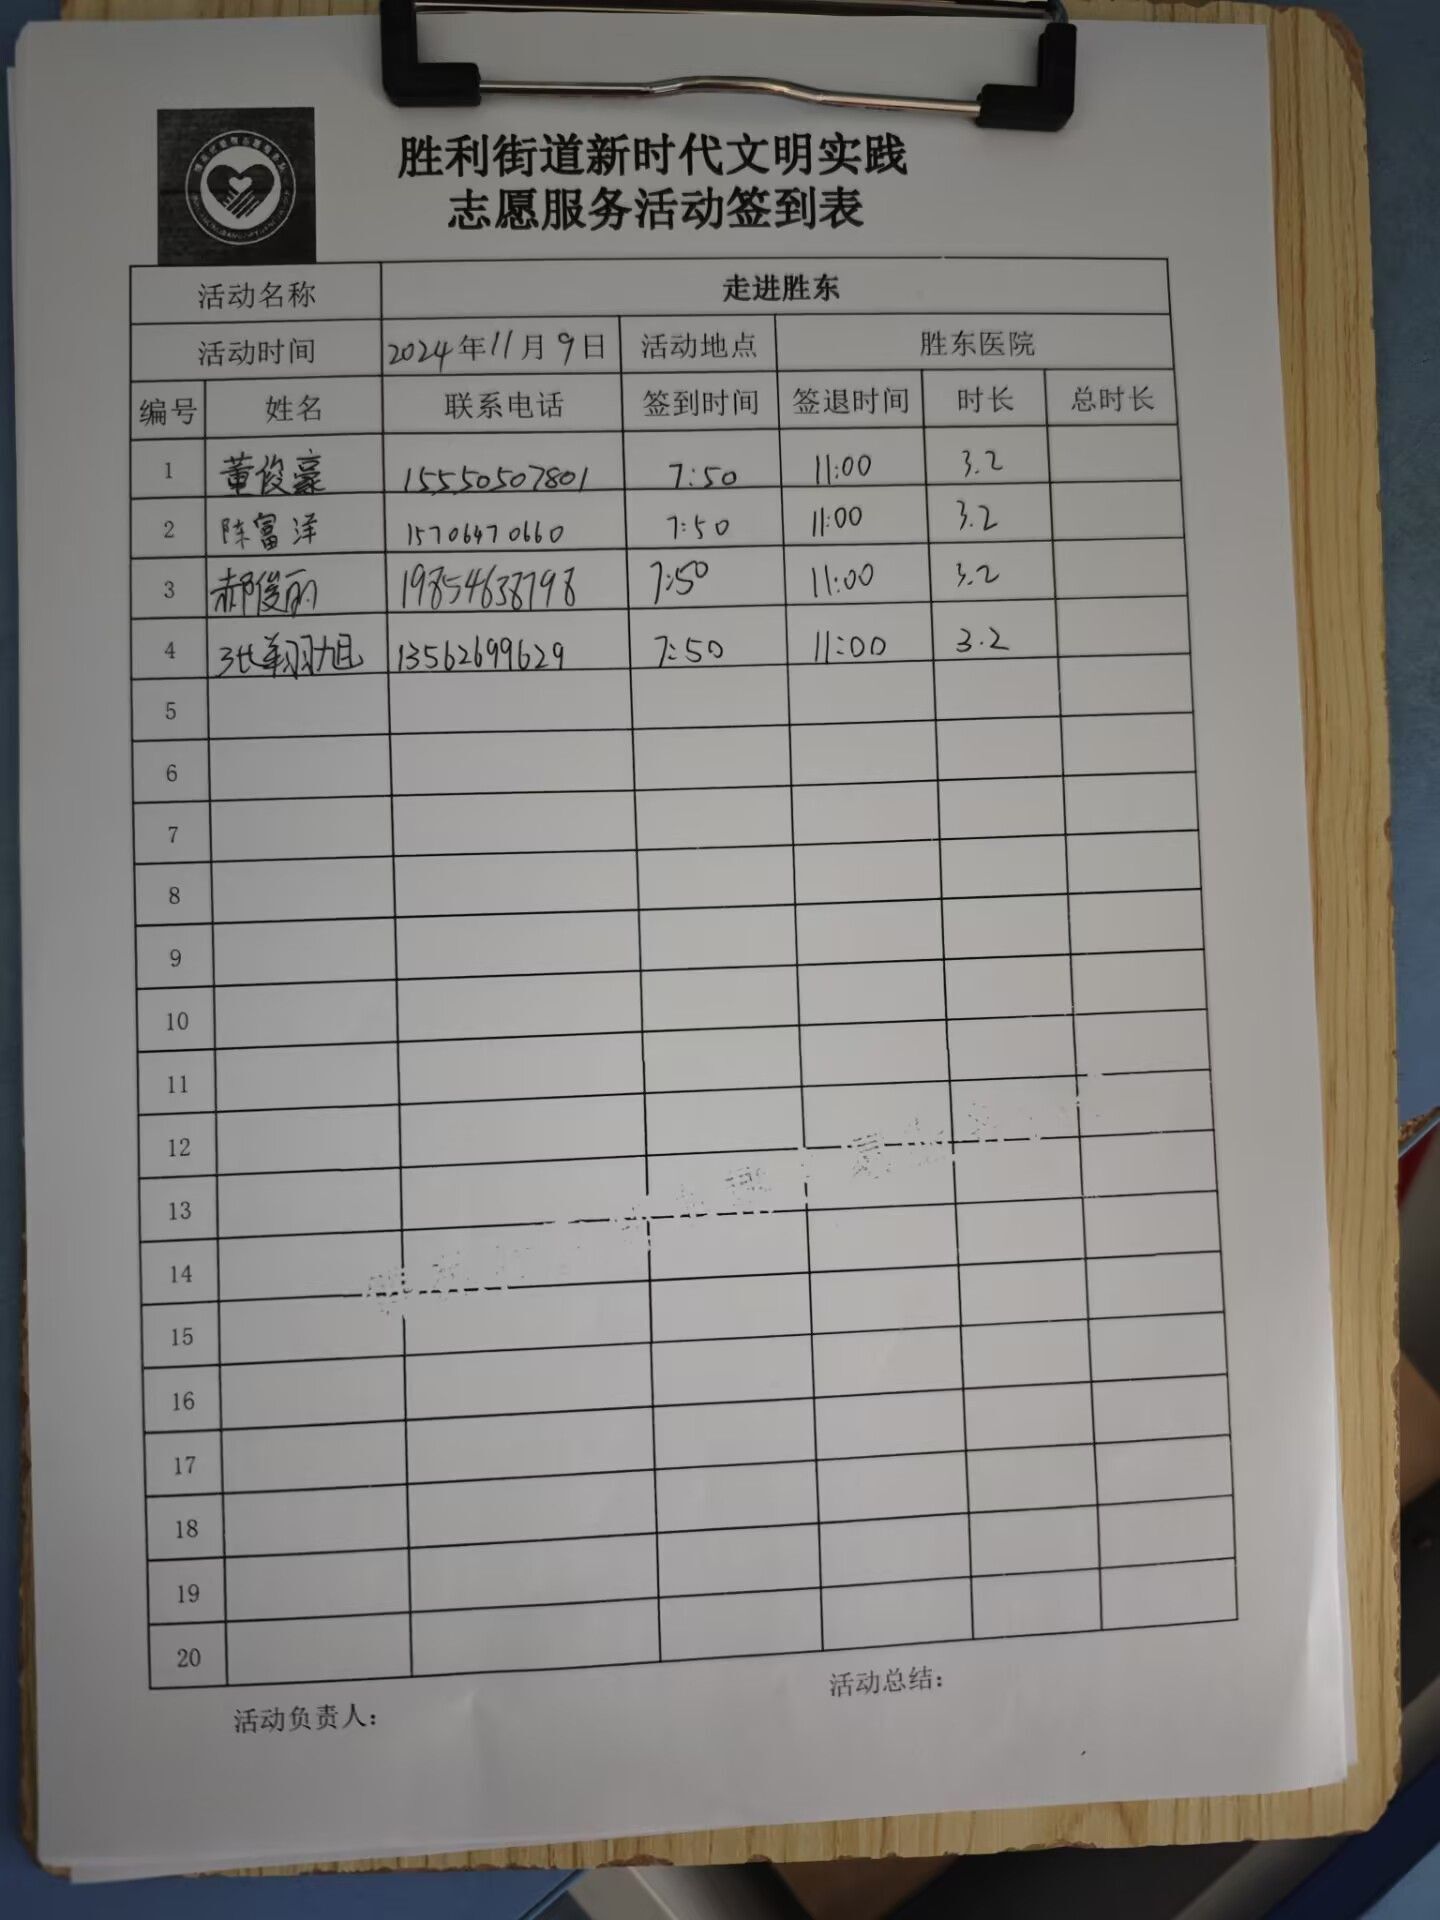 胜利街道新时代文明实践
志愿服务活动签到表
活动名称 走进胜东
活动时间 2024年11月9日 活动地点 胜东医院
编号 姓名 联系电话 签到时间 签退时间 时长 总时长
1 董俊豪 15550507801 7:50 11:00 3.2
2 陈富泽 15706470660 7:50 11:00 3.2
3 郝俊丽 19854638798 7:50 11:00 3.2
4 张翔旭 13562699629 7:50 11:00 3.2
5
6
7
8
9
10
11
12
13
14
15
16
17
18
19
20
活动负责人： 活动总结：